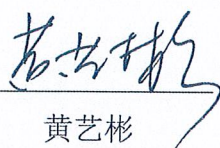 黄艺彬
黄艺彬